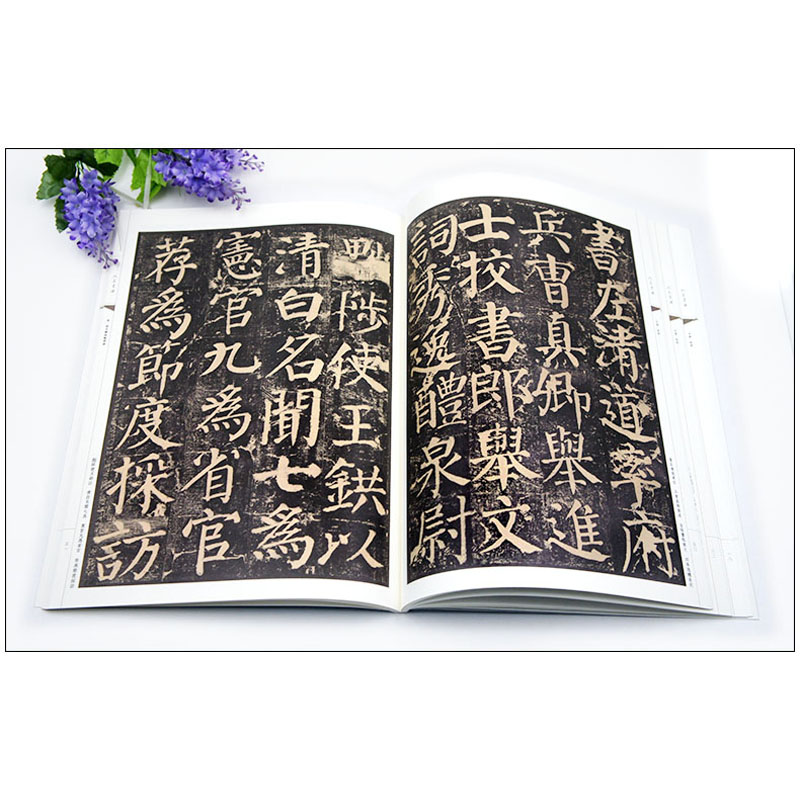 書左清道率府
兵曹真卿舉進
士校書郎舉文
詞秀逸醴泉尉
黜陟使王鉷以
清白名聞七爲
憲官九爲省官
荐爲節度採訪